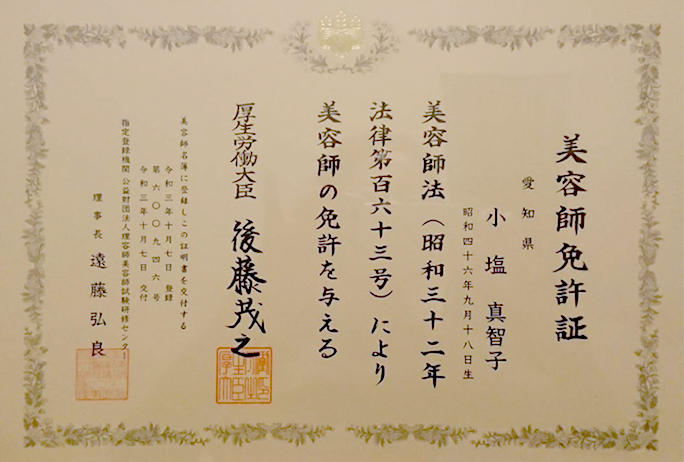 美容師免許証
愛知県
小塩 真智子
昭和四十六年九月十八日生
美容師法(昭和三十二年
法律第百六十三号)により
美容師の免許を与える
厚生労働大臣 後藤茂之
美容師名簿に登録しこの証明書を交付する
令和三年十月七日 登録
第六〇〇九四六号
令和三年十月七日 交付
指定登録機関 公益財団法人理容師美容師試験研修センター
理事長 遠藤弘良